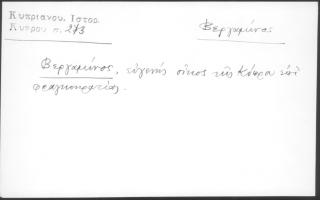 Κυπριανού. Ιστορ.
Κύπρου σ. 273
Βεργαμῖνος
Βεργαμῖνος, εὐγενὴς οἶκος τῆς Κύπρου ἐπὶ
φραγκοκρατίας.